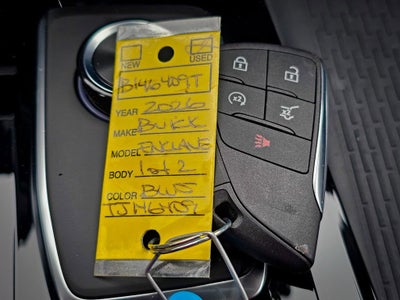 NEW USED
B146409T
YEAR 2026
MAKE BUICK
MODEL ENCLAVE
BODY 1 of 2
COLOR BLUE
TJ146409
x2